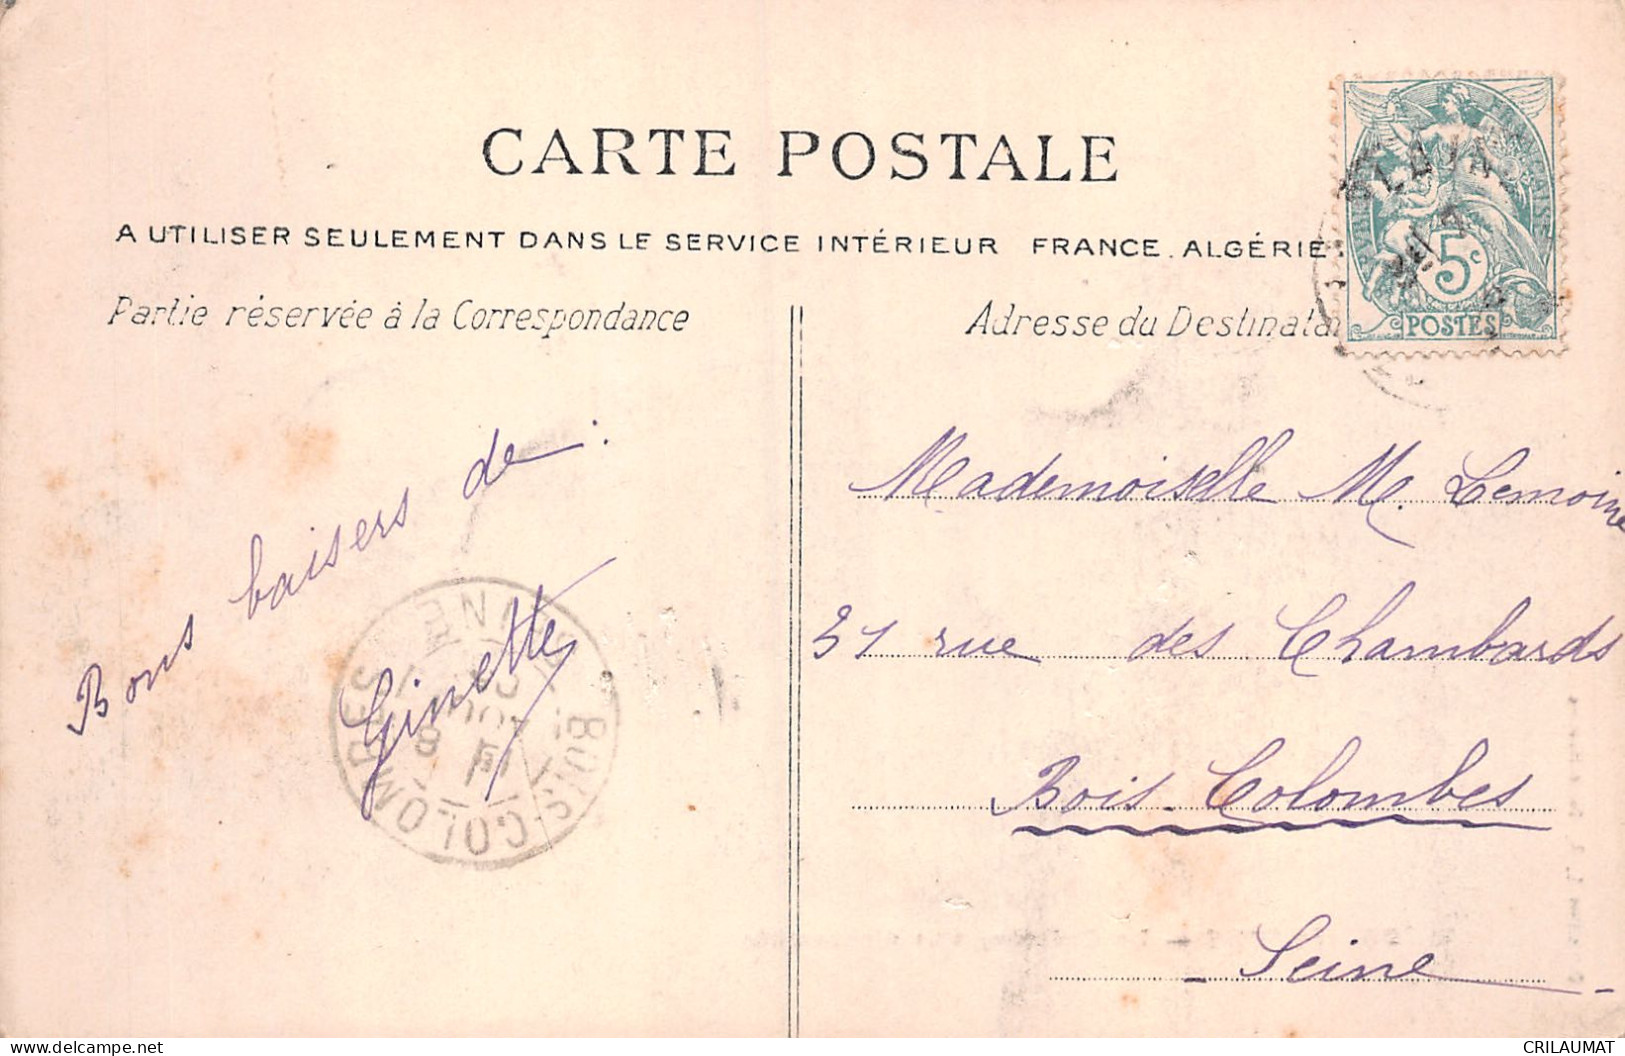 CARTE POSTALE
A UTILISER SEULEMENT DANS LE SERVICE INTÉRIEUR FRANCE. ALGÉRIE
Partie réservée à la Correspondance
Adresse du Destinata
5c
POSTES
Bons baisers de :
Ginette
BOIS-COLOMBES
SEINE
Mademoiselle M. Lemoine
31 rue des Chambards
Bois-Colombes
- Seine -
delcampe.net
CRILAUMAT